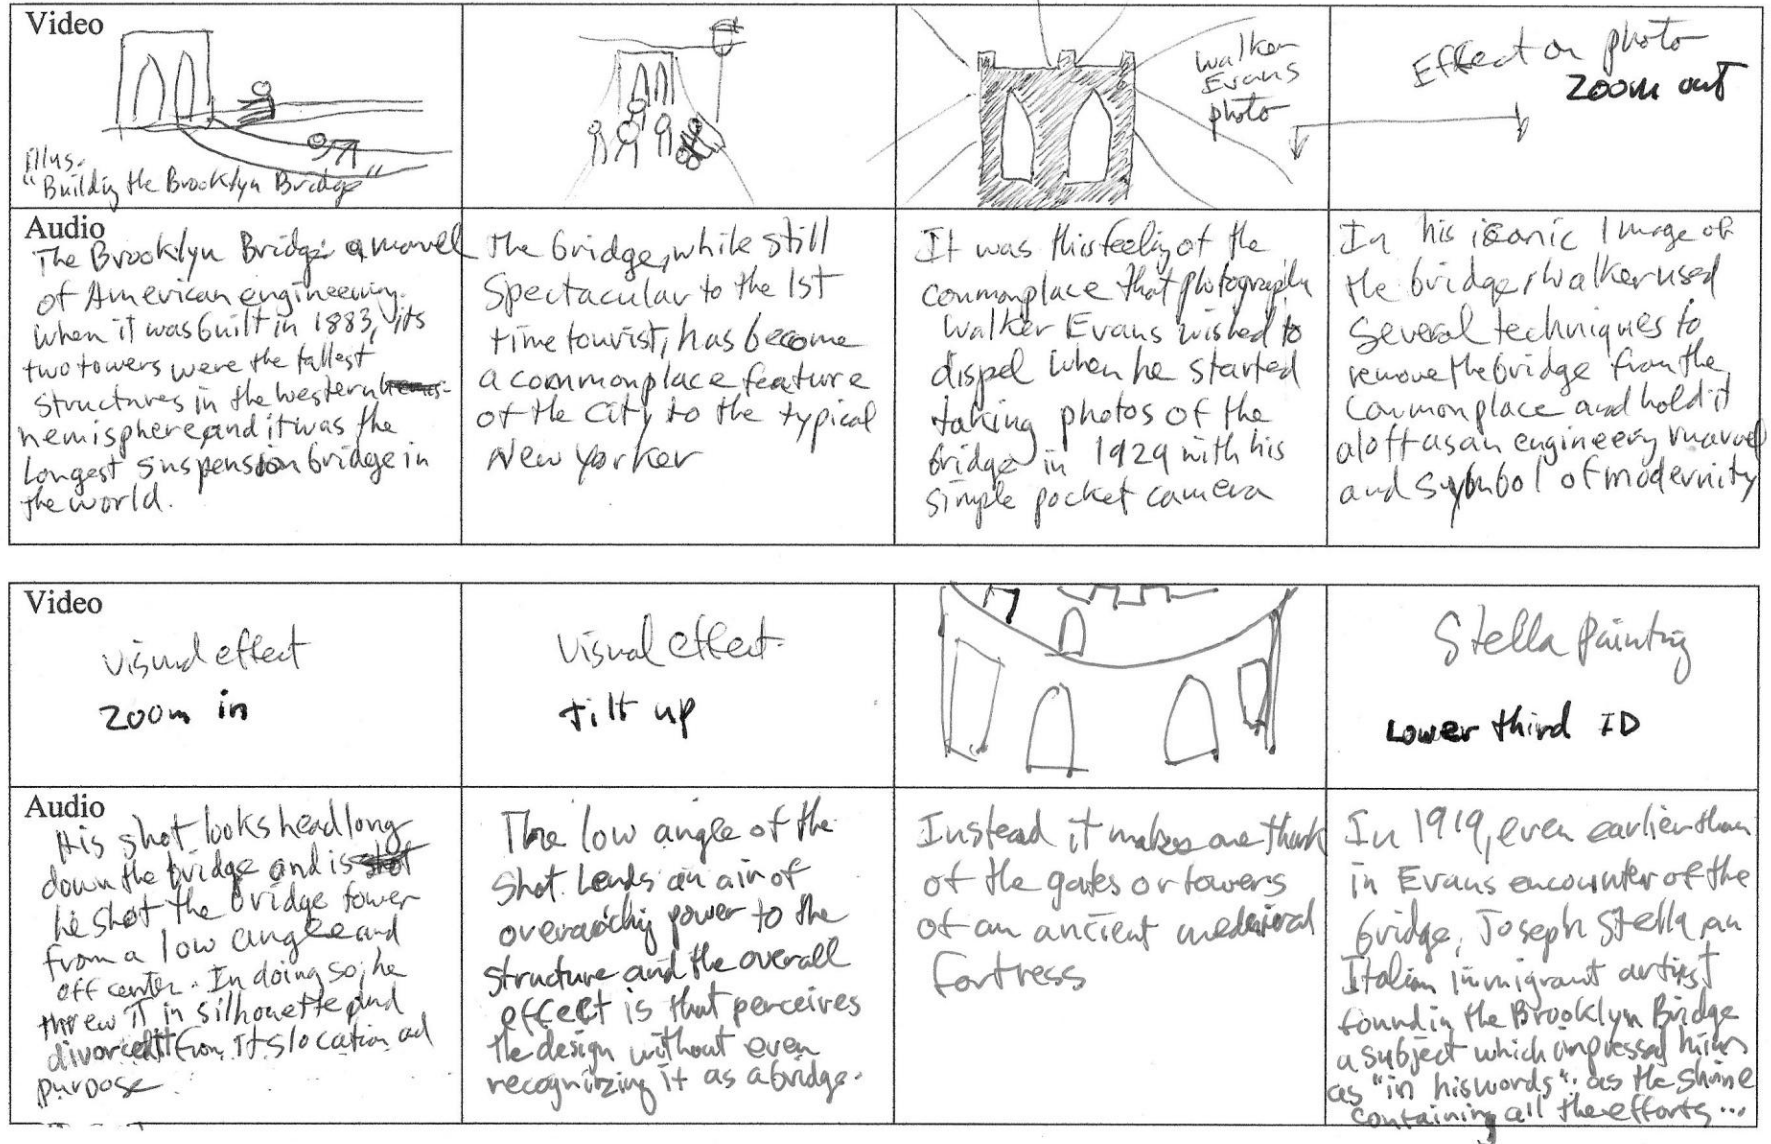 Video
illus.
"Building the Brooklyn Bridge"
Walker
Evans
photo
Effect on photo
zoom out
Audio
The Brooklyn Bridge a marvel
of American engineering.
When it was built in 1883, its
two towers were the tallest
structures in the western
hemisphere and it was the
longest suspension bridge in
the world.
The bridge, while still
spectacular to the 1st
time tourist, has become
a commonplace feature
of the City to the typical
New Yorker
It was this feeling of the
commonplace that photographer
Walker Evans wished to
dispel when he started
taking photos of the
bridge in 1929 with his
simple pocket camera
In his iconic Image of
the bridge, Walker used
several techniques to
remove the bridge from the
commonplace and hold it
aloft as an engineering marvel
and symbol of modernity
Video
visual effect
zoom in
visual effect
tilt up
Stella Painting
Lower third ID
Audio
His shot looks headlong
down the bridge and is shot
he shot the bridge tower
from a low angle and
off center. In doing so, he
threw it in silhouette and
divorced it from its location and
purpose
The low angle of the
shot lends an air of
overarching power to the
structure and the overall
effect is that perceives
the design without even
recognizing it as a bridge.
Instead it makes one think
of the gates or towers
of an ancient medieval
fortress
In 1919, even earlier than
in Evans encounter of the
bridge, Joseph Stella, an
Italian Immigrant artist
found in the Brooklyn Bridge
a subject which impressed him
as "in his words". as the shrine
containing all the efforts ...